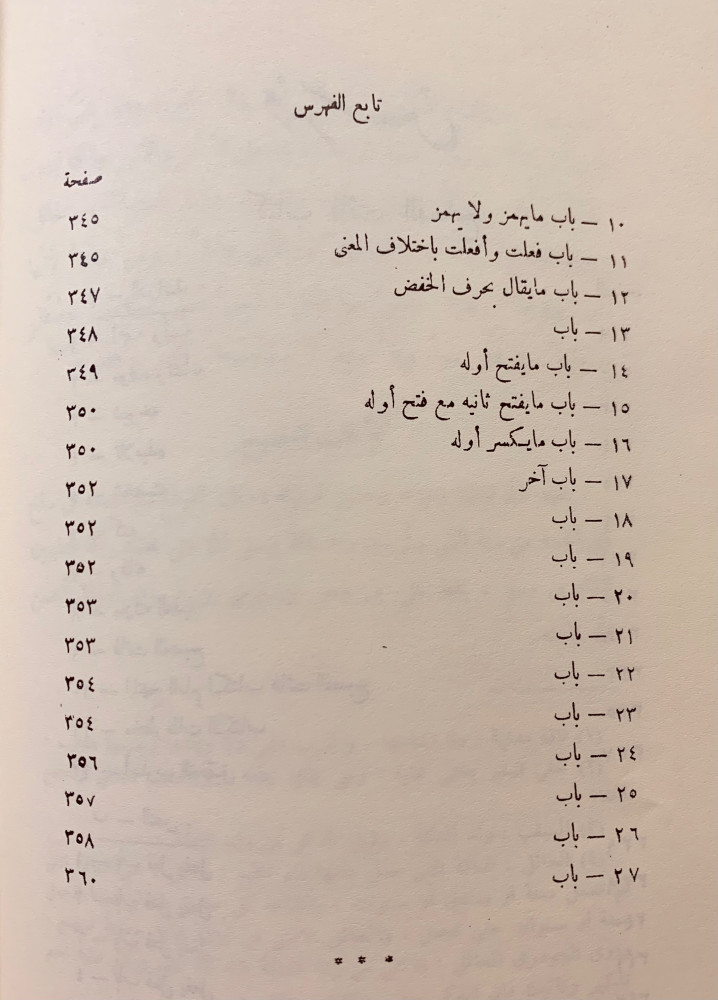 تابع الفهرس
صفحة
١٠ — باب مايهمز ولا يهمز ٣٤٥
١١ — باب فعلت وأفعلت باختلاف المعنى ٣٤٥
١٢ — باب مايقال بحرف الخفض ٣٤٧
١٣ — باب ٣٤٨
١٤ — باب مايفتح أوله ٣٤٩
١٥ — باب مايفتح ثانيه مع فتح أوله ٣٥٠
١٦ — باب مايكسر أوله ٣٥٠
١٧ — باب آخر ٣٥٢
١٨ — باب ٣٥٢
١٩ — باب ٣٥٢
٢٠ — باب ٣٥٣
٢١ — باب ٣٥٣
٢٢ — باب ٣٥٤
٢٣ — باب ٣٥٤
٢٤ — باب ٣٥٦
٢٥ — باب ٣٥٧
٢٦ — باب ٣٥٨
٢٧ — باب ٣٦٠
* * *